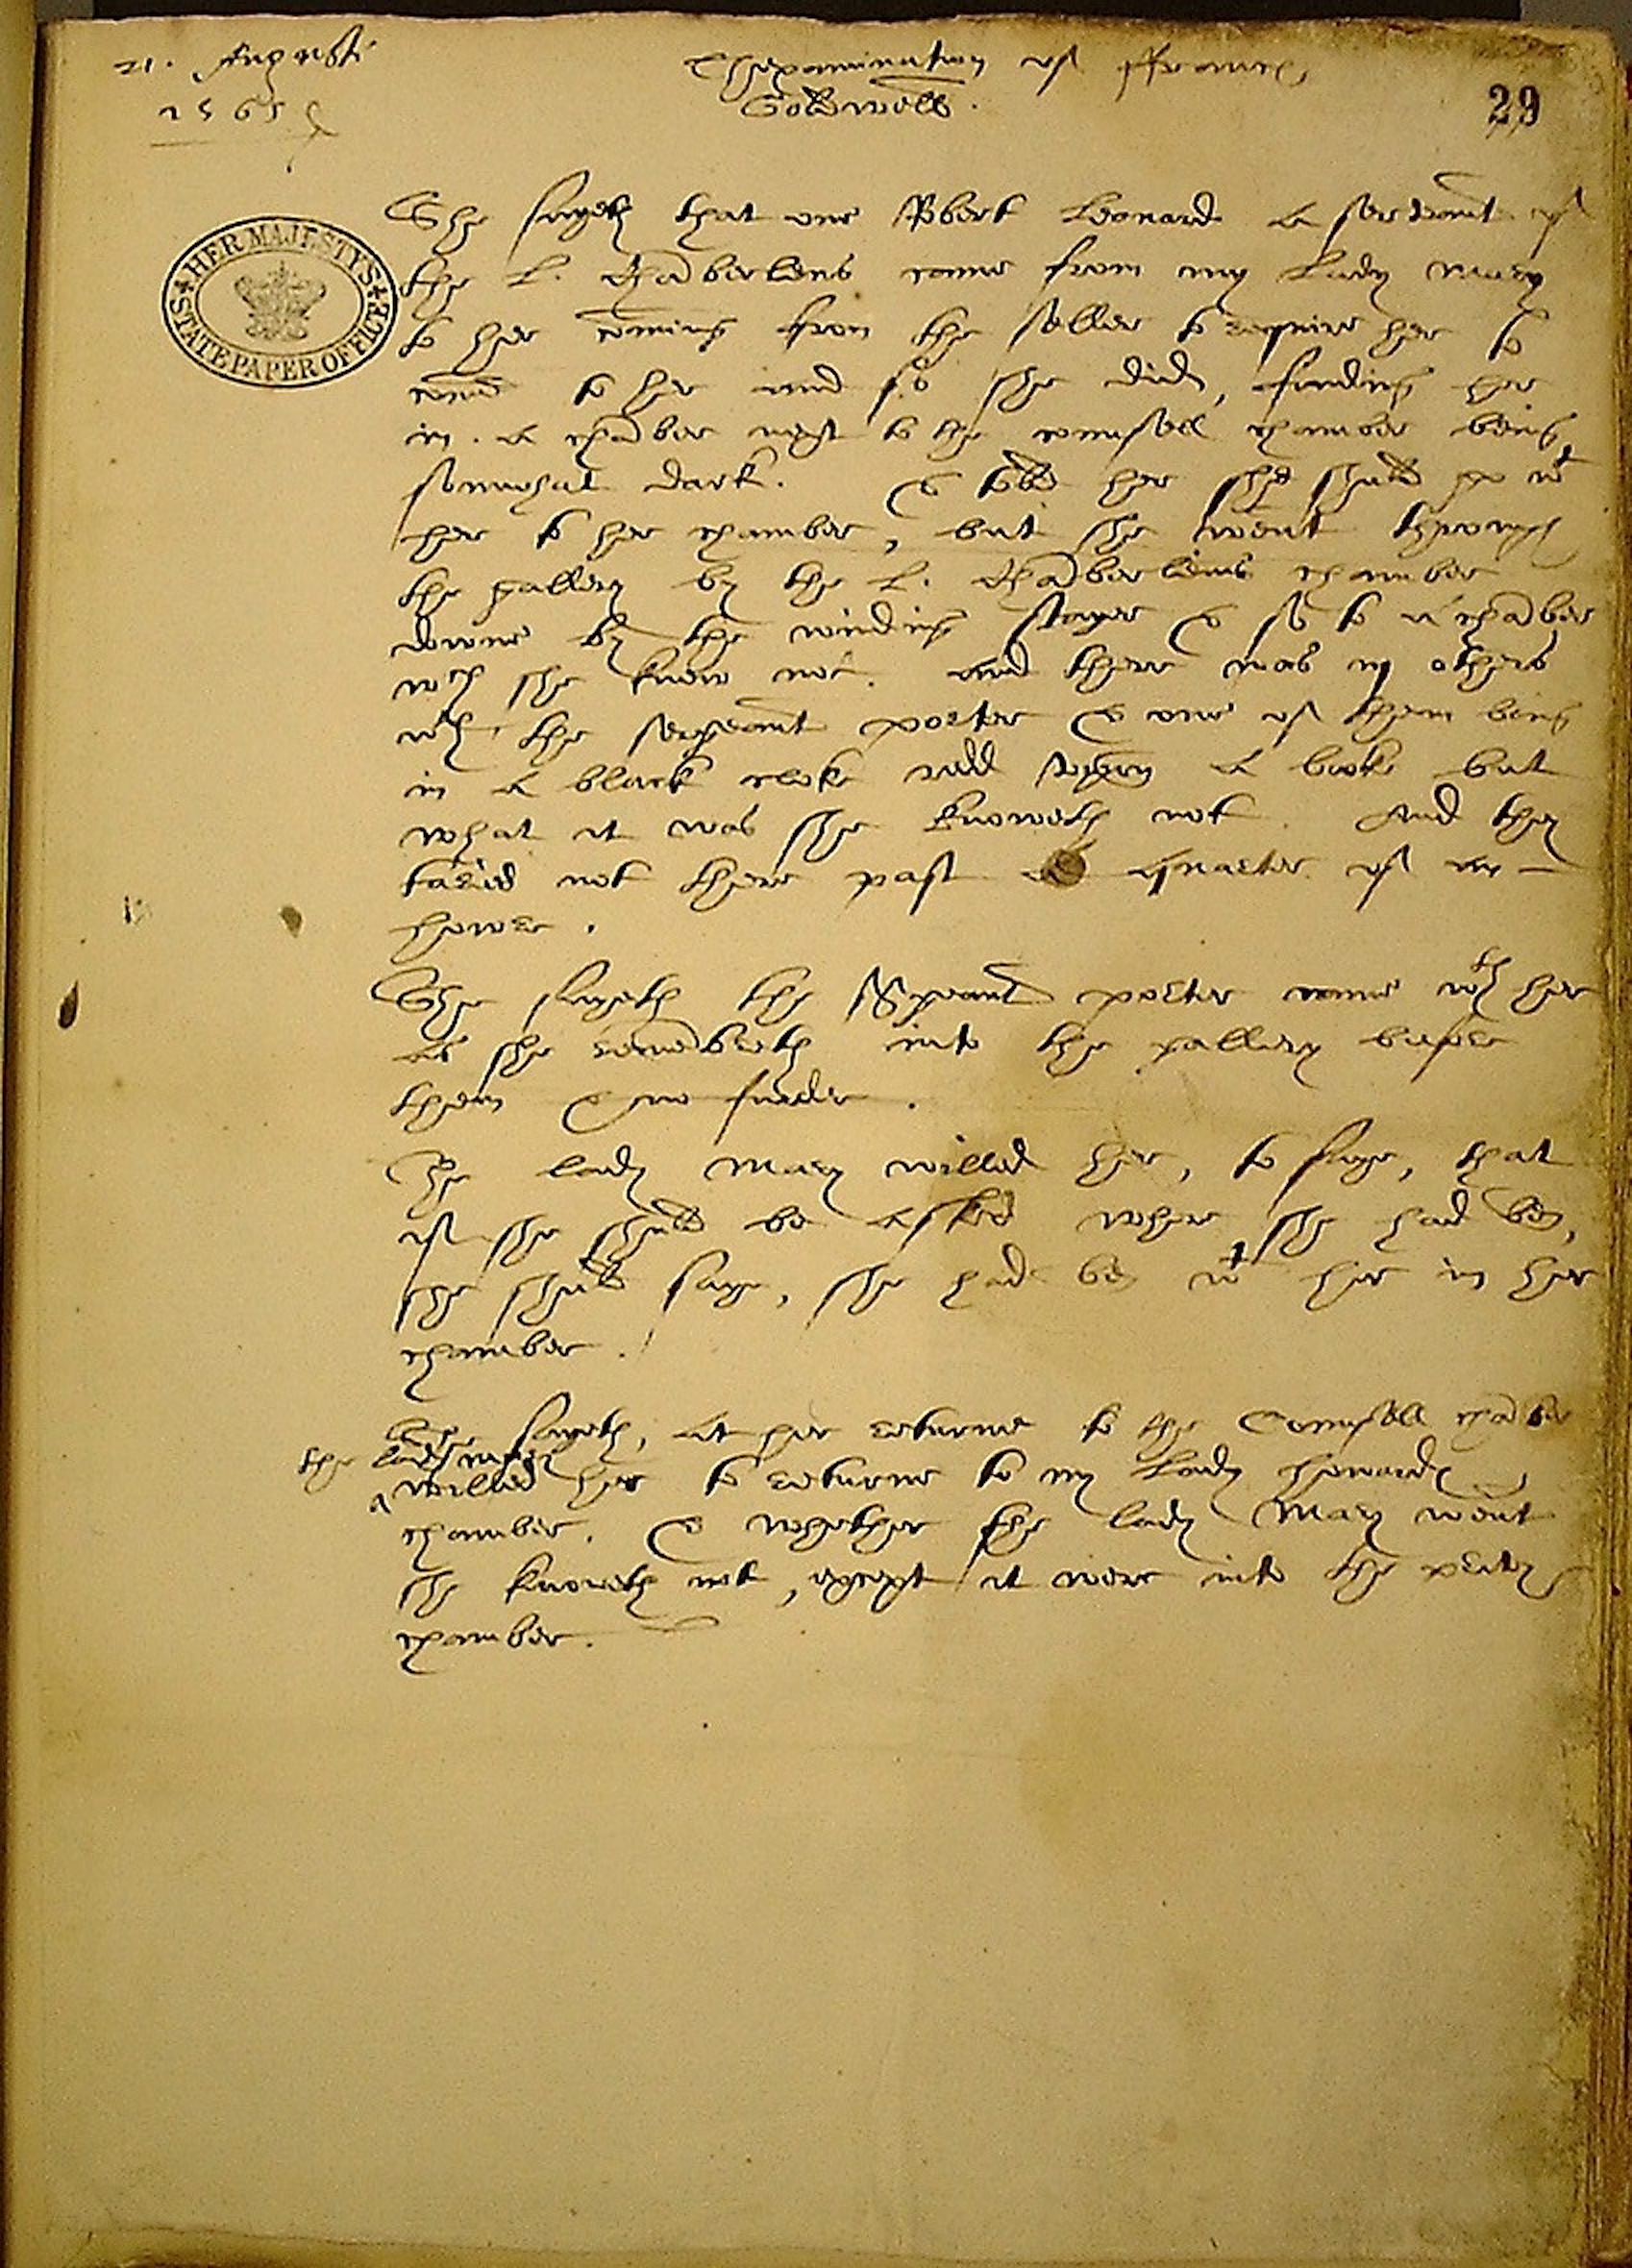 21. Augusti
1565
Thexamination of Frances
Goldwell.
29
HER MAJESTYS
STATE PAPER OFFICE
She sayeth that one Robert Leonard a servant of
the L. Chãberlens came from my Lady Mary
to her cõming from the seller to require her to
come to her and so she did, finding her
in a chãber next to the counsell chamber being
somwhat dark. & told her she shuld go wt
her to her chamber, but she went through
the gallery by the L. Chãberleins chamber
downe by the winding stayer & so to a chãber
wch she knew not. and there was iij others
wth the sergeant porter & one of them being
in a black cloke redd upon a booke but
what it was she knoweth not. And they
taried not there past a quarter of an
howre.
She sayeth the Sergeant porter came wth her
as she remẽbreth into the gallery before
them & no furder.
The lady Mary willed her, to saye, that
if she shuld be asked where she had ben,
she shuld saye, she had ben wt her in her
chamber.
She sayeth, at her returne to the Counsell chãber
the lady mary
willed her to returne to my Lady Howards
chamber. & whether the lady Mary went
she knoweth not, except it were into the privy
chamber.